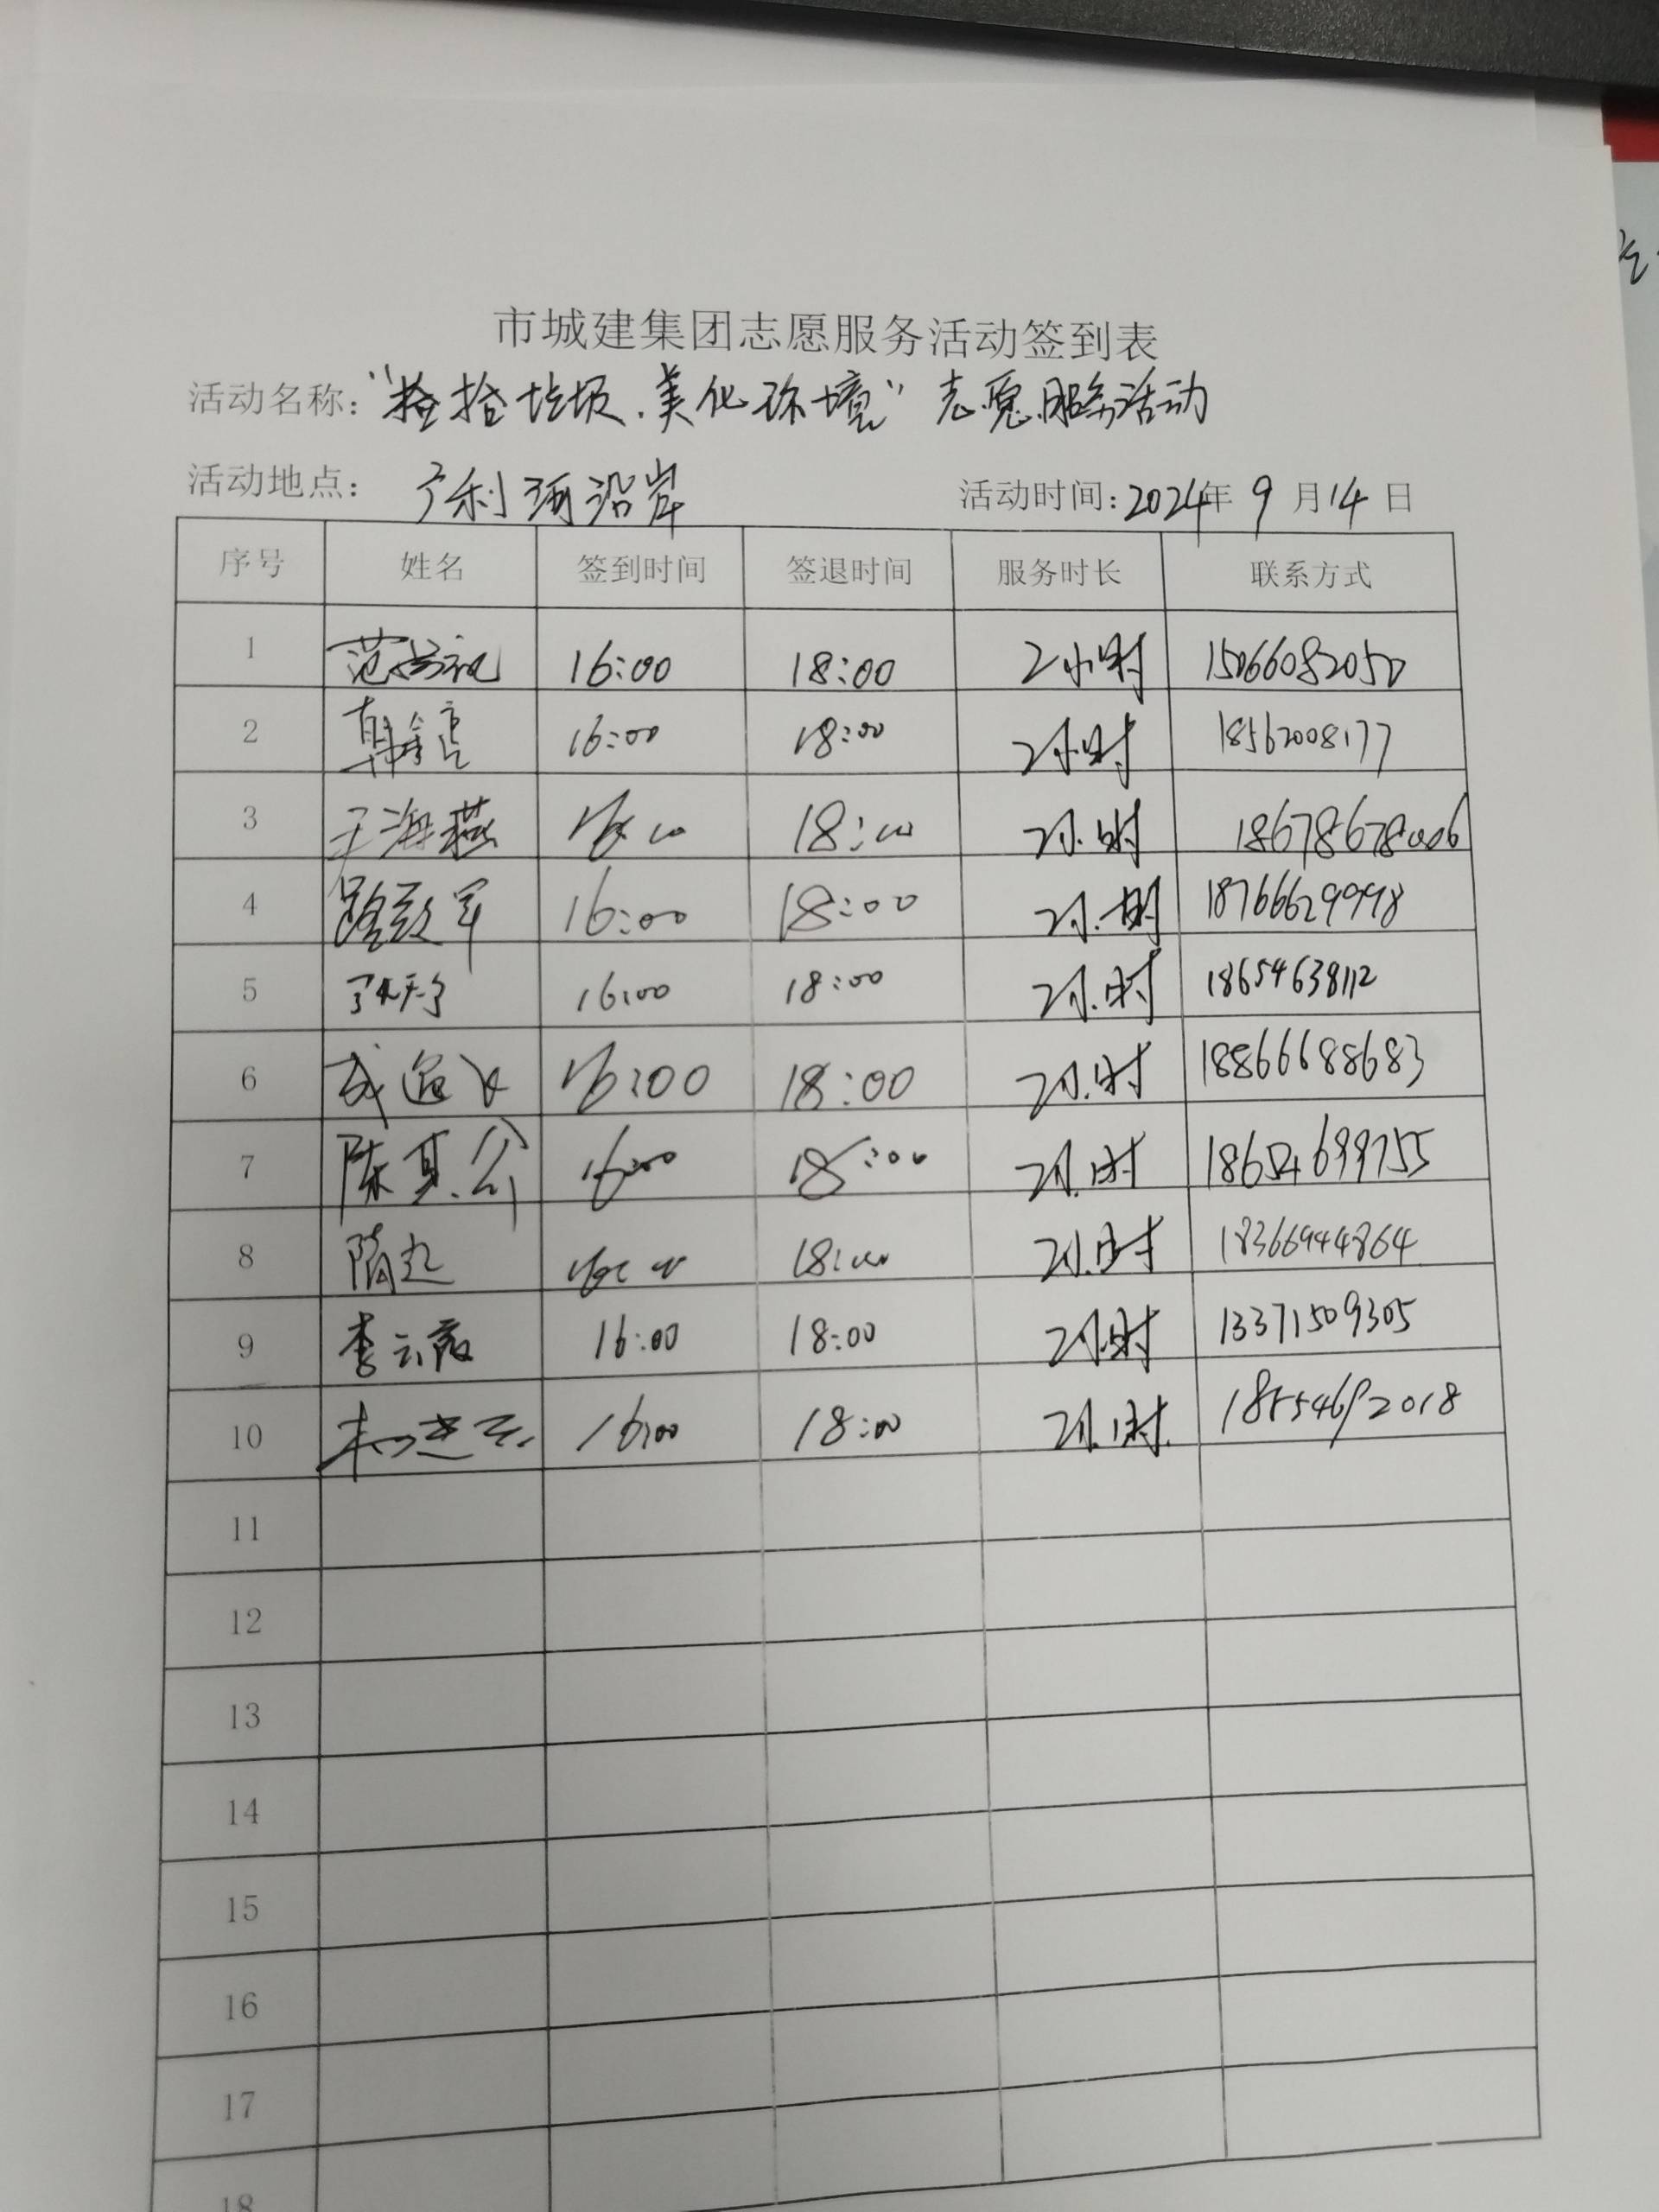 市城建集团志愿服务活动签到表
活动名称：“捡拾垃圾.美化环境”志愿服务活动
活动地点： 广利河沿岸 活动时间：2024年 9 月 14 日
序号 姓名 签到时间 签退时间 服务时长 联系方式
1 16:00 18:00 2小时 15066082050
2 16:00 18:00 2小时 18562008177
3 于海燕 16:00 18:00 2小时 18678678006
4 路致军 16:00 18:00 2小时 18766629998
5 16:00 18:00 2小时 18654638112
6 16:00 18:00 2小时 18866688683
7 16:00 18:00 2小时 18654699755
8 16:00 18:00 2小时 18366944864
9 李云霞 16:00 18:00 2小时 13371509305
10 16:00 18:00 2小时. 18554692018
11
12
13
14
15
16
17
18